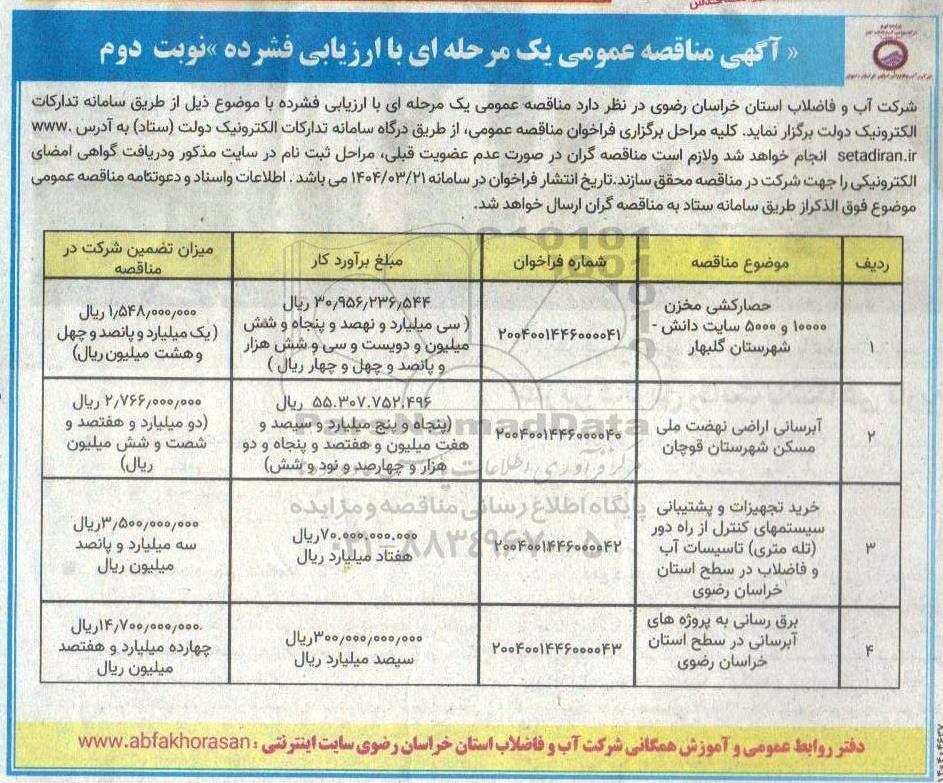 « آگهی مناقصه عمومی یک مرحله ای با ارزیابی فشرده »نوبت دوم
شرکت آب و فاضلاب استان خراسان رضوی در نظر دارد مناقصه عمومی یک مرحله ای با ارزیابی فشرده با موضوع ذیل از طریق سامانه تدارکات
الکترونیک دولت برگزار نماید. کلیه مراحل برگزاری فراخوان مناقصه عمومی، از طریق درگاه سامانه تدارکات الکترونیک دولت (ستاد) به آدرس www.
setadiran.ir انجام خواهد شد ولازم است مناقصه گران در صورت عدم عضویت قبلی، مراحل ثبت نام در سایت مذکور ودریافت گواهی امضای
الکترونیکی را جهت شرکت در مناقصه محقق سازند.تاریخ انتشار فراخوان در سامانه ۱۴۰۴/۰۳/۲۱ می باشد . اطلاعات واسناد و دعوتنامه مناقصه عمومی
موضوع فوق الذکراز طریق سامانه ستاد به مناقصه گران ارسال خواهد شد.
ردیف
موضوع مناقصه
شماره فراخوان
مبلغ برآورد کار
میزان تضمین شرکت در
مناقصه
۱
حصارکشی مخزن
۱۰۰۰۰ و ۵۰۰۰ سایت دانش -
شهرستان گلبهار
۲۰۰۴۰۰۱۴۴۶۰۰۰۰۴۱
۳۰٫۹۵۶٫۲۳۶٫۵۴۴ ریال
( سی میلیارد و نهصد و پنجاه و شش
میلیون و دویست و سی و شش هزار
و پانصد و چهل و چهار ریال )
۱٫۵۴۸٫۰۰۰٫۰۰۰ ریال
( یک میلیارد و پانصد و چهل
و هشت میلیون ریال)
۲
آبرسانی اراضی نهضت ملی
مسکن شهرستان قوچان
۲۰۰۴۰۰۱۴۴۶۰۰۰۰۴۰
۵۵.۳۰۷.۷۵۲.۴۹۶ ریال
(پنجاه و پنج میلیارد و سیصد و
هفت میلیون و هفتصد و پنجاه و دو
هزار و چهارصد و نود و شش)
۲٫۷۶۶٫۰۰۰٫۰۰۰ ریال
(دو میلیارد و هفتصد و
شصت و شش میلیون
ریال)
۳
خرید تجهیزات و پشتیبانی
سیستمهای کنترل از راه دور
(تله متری) تاسیسات آب
و فاضلاب در سطح استان
خراسان رضوی
۲۰۰۴۰۰۱۴۴۶۰۰۰۰۴۲
۷۰.۰۰۰.۰۰۰.۰۰۰ریال
هفتاد میلیارد ریال
۳٫۵۰۰٫۰۰۰٫۰۰۰ریال
سه میلیارد و پانصد
میلیون ریال
۴
برق رسانی به پروژه های
آبرسانی در سطح استان
خراسان رضوی
۲۰۰۴۰۰۱۴۴۶۰۰۰۰۴۳
۳۰۰٫۰۰۰٫۰۰۰٫۰۰۰ریال
سیصد میلیارد ریال
۱۴٫۷۰۰٫۰۰۰٫۰۰۰ریال
چهارده میلیارد و هفتصد
میلیون ریال
ParsNamadData
پایگاه اطلاع رسانی مناقصه و مزایده
دفتر روابط عمومی و آموزش همگانی شرکت آب و فاضلاب استان خراسان رضوی سایت اینترنتی : www.abfakhorasan